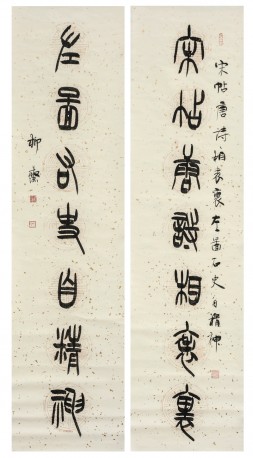 宋帖唐詩相表裏左圖右史自精神
宋帖唐詩相表裏
左圖右史自精神
柳